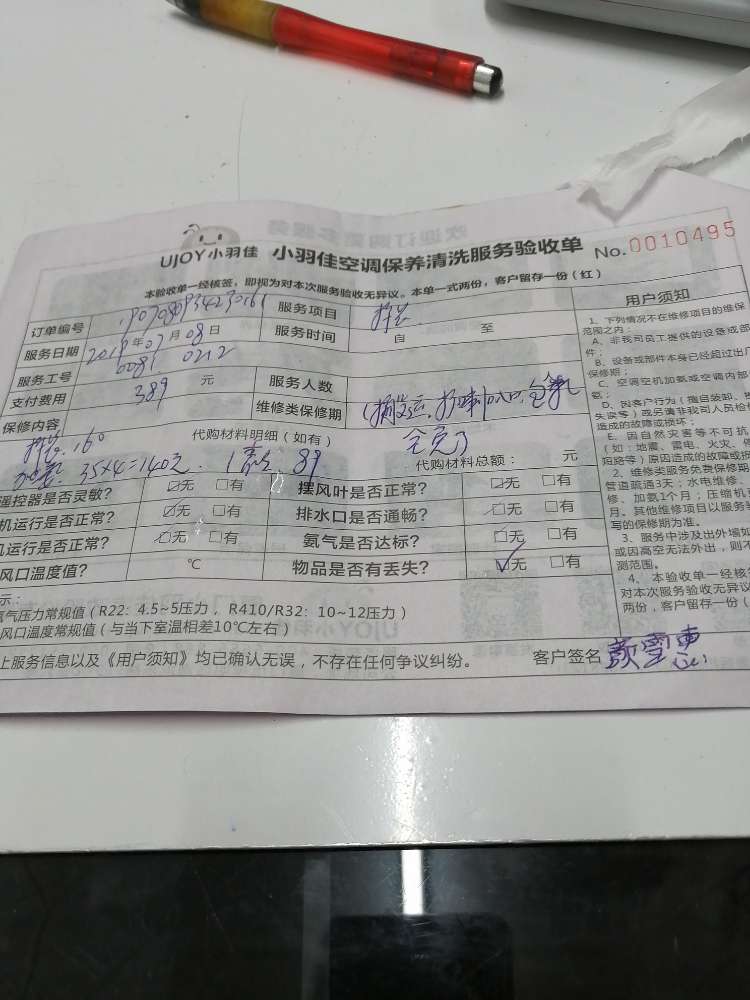 UJOY小羽佳 小羽佳空调保养清洗服务验收单 No.0010495
本验收单一经核签，即视为对本次服务验收无异议。本单一式两份，客户留存一份（红）
订单编号 服务项目
服务日期 2019年07月08日 服务时间 自 至
服务工号 0081. 0212 服务人数
支付费用 389 元 维修类保修期
保修内容 代购材料明细（如有） 全免了
35×4=140元. 89 代购材料总额： 元
遥控器是否灵敏？ ☑无 □有 摆风叶是否正常？ ☑无 □有
机运行是否正常？ ☑无 □有 排水口是否通畅？ ☑无 □有
机运行是否正常？ ☑无 □有 氨气是否达标？ □无 □有
风口温度值？ ℃ 物品是否有丢失？ ☑无 □有
示：
氨气压力常规值（R22：4.5~5压力，R410/R32：10~12压力）
风口温度常规值（与当下室温相差10℃左右）
上服务信息以及《用户须知》均已确认无误，不存在任何争议纠纷。 客户签名
用户须知
1、下列情况不在维修项目的维保
范围之内：
A、非我司员工提供的设备或部
件；
B、设备或部件本身已经超过出厂
保修期；
C、空调空机加氨或空调内部
氨；
D、因客户行为（擅自装卸、
失误等）或另请非我司人员检
造成的故障或损坏；
E、因自然灾害等不可抗
（如：地震、雷电、火灾、
短路等）原因造成的故障或损
2、维修类服务免费保修期
管道疏通3天；水电维修、
修、加氨1个月；压缩机
月。其他维修项目以服务
写的保修期为准。
3、服务中涉及出外墙如
或因高空无法外出，则不
测范围。
4、本验收单一经核
对本次服务验收无异议
两份，客户留存一份（